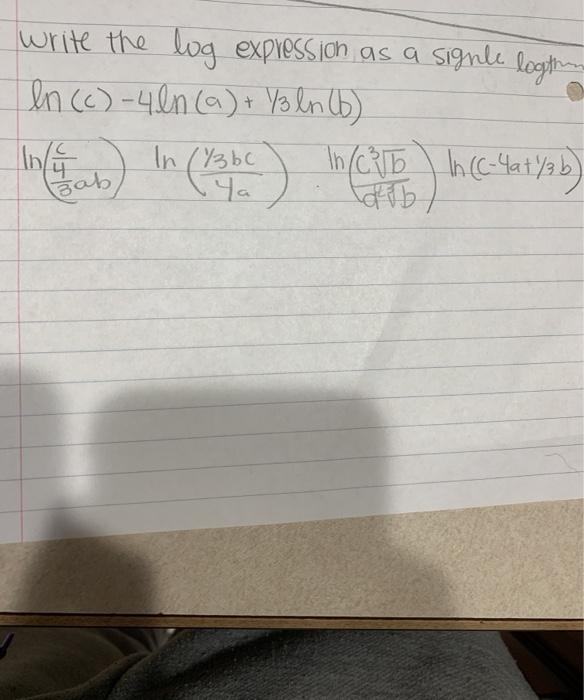 write the log expression as a signle logthm
ln (c) - 4ln (a) + 1/3 ln(b)
ln(c/4/3ab) ln (1/3bc/4a) ln (c∛b/) ln (c-4a+1/3b)